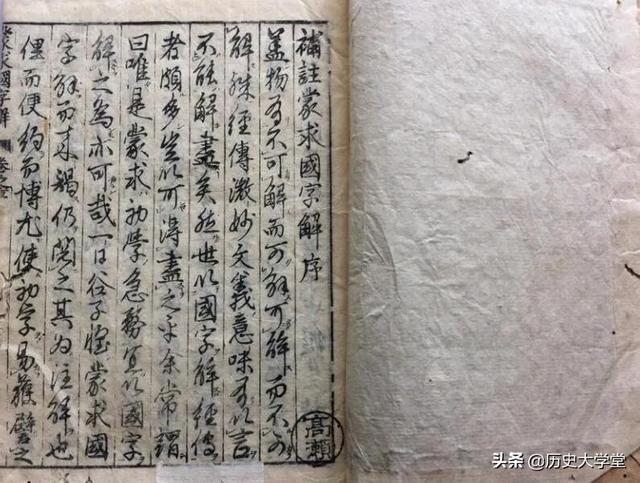 補註蒙求國字解序
蓋物有不可解而可解可解而不可
解殊經傳微妙文義意味有以言
不能解盡矣然世以國字解經傳
者頗多豈以可得盡之乎余常謂
曰唯是蒙求初學急務宜以國字
解之為亦可哉一日谷子恪蒙求國
字解而来觴仍閲之其為注解也
俚而便約而博尤使初学易穫譬之
蒙求國字解 卷之
高瀬
头条 @历史大学堂